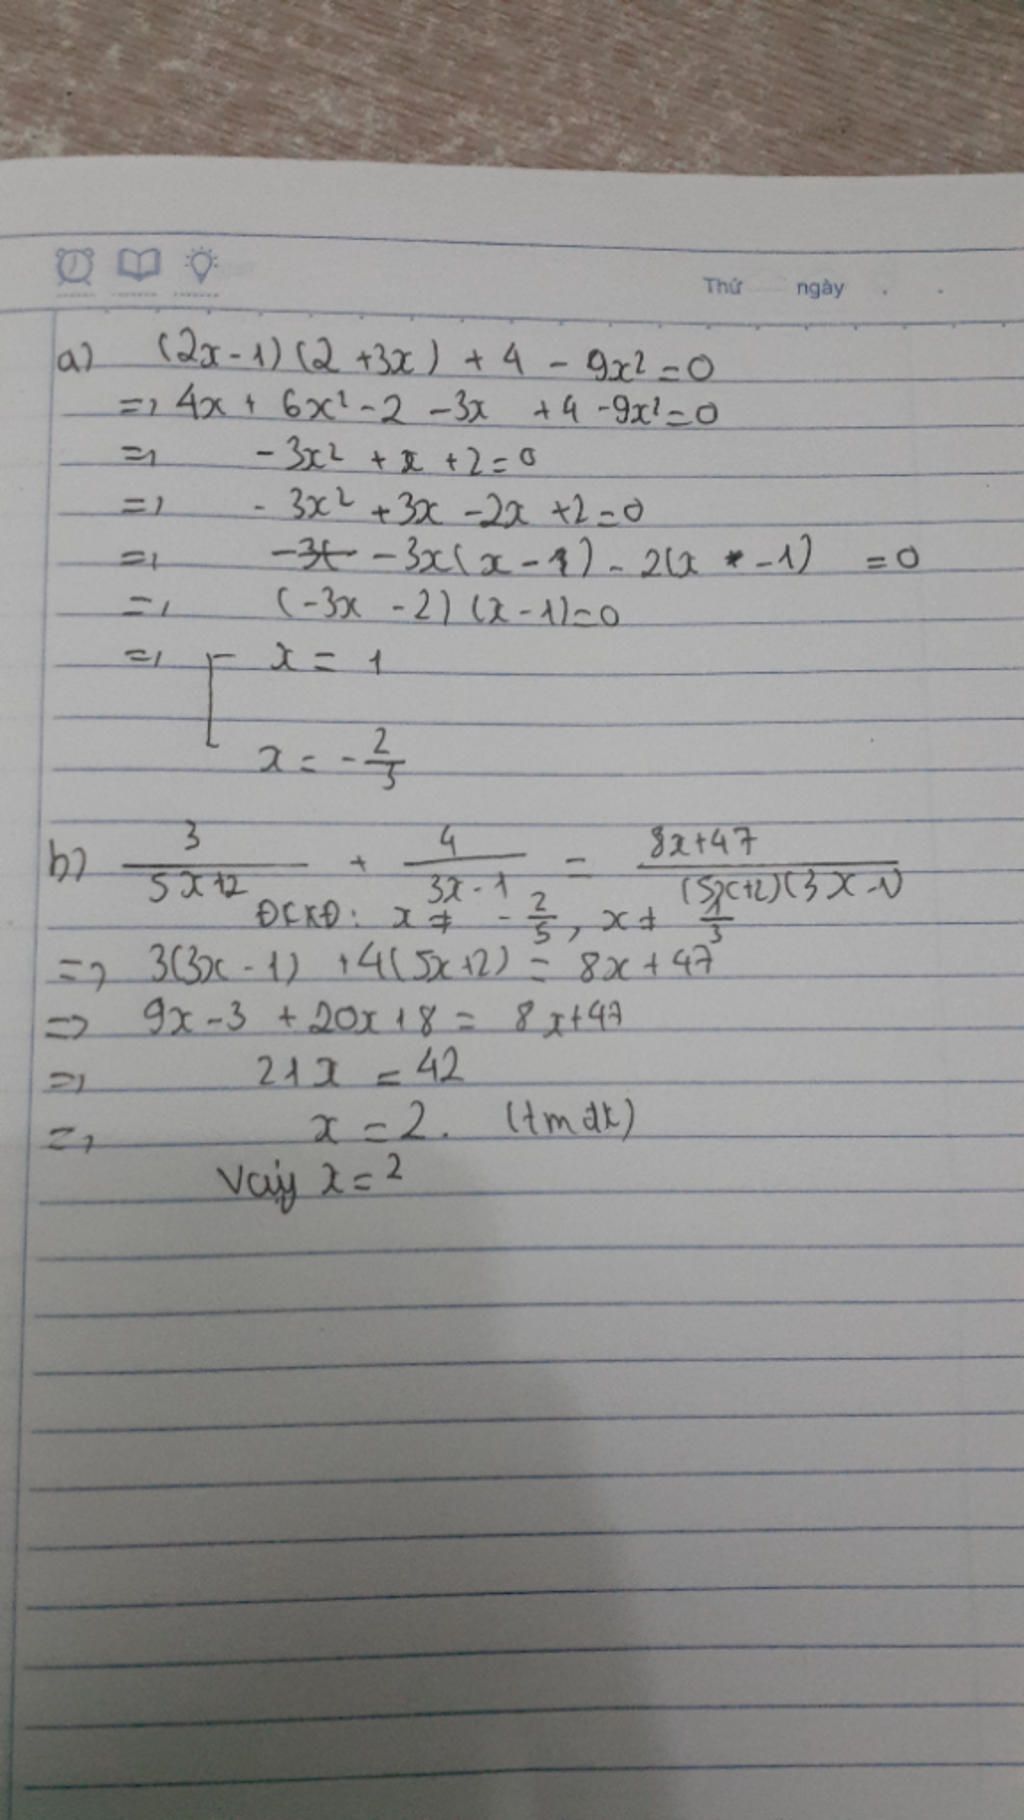 Thứ ngày
a) (2x-1)(2+3x) + 4 - 9x² = 0
=> 4x + 6x² - 2 - 3x + 4 - 9x² = 0
=> - 3x² + x + 2 = 0
=> - 3x² + 3x - 2x + 2 = 0
=> -3x(x-1) - 2(x-1) = 0
=> (-3x - 2)(x-1) = 0
=> [ x = 1
x = - 2/3
b) 3/(5x+2) + 4/(3x-1) = (8x+47)/((5x+2)(3x-1))
ĐCKĐ: x ≠ - 2/5, x ≠ 1/3
=> 3(3x-1) + 4(5x+2) = 8x + 47
=> 9x - 3 + 20x + 8 = 8x + 47
=> 21x = 42
=> x = 2. (tmdk)
Vậy x = 2